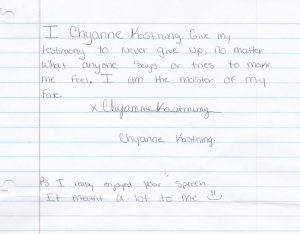 I Chyanne Kastning Give my
testimony to Never give up, no matter
What anyone Says or tries to make
me feel. I am the master of my
Fate.
x Chyanne Kastning
Chyanne Kastning.
Ps I really enjoyed your Speech
It meant a lot to me